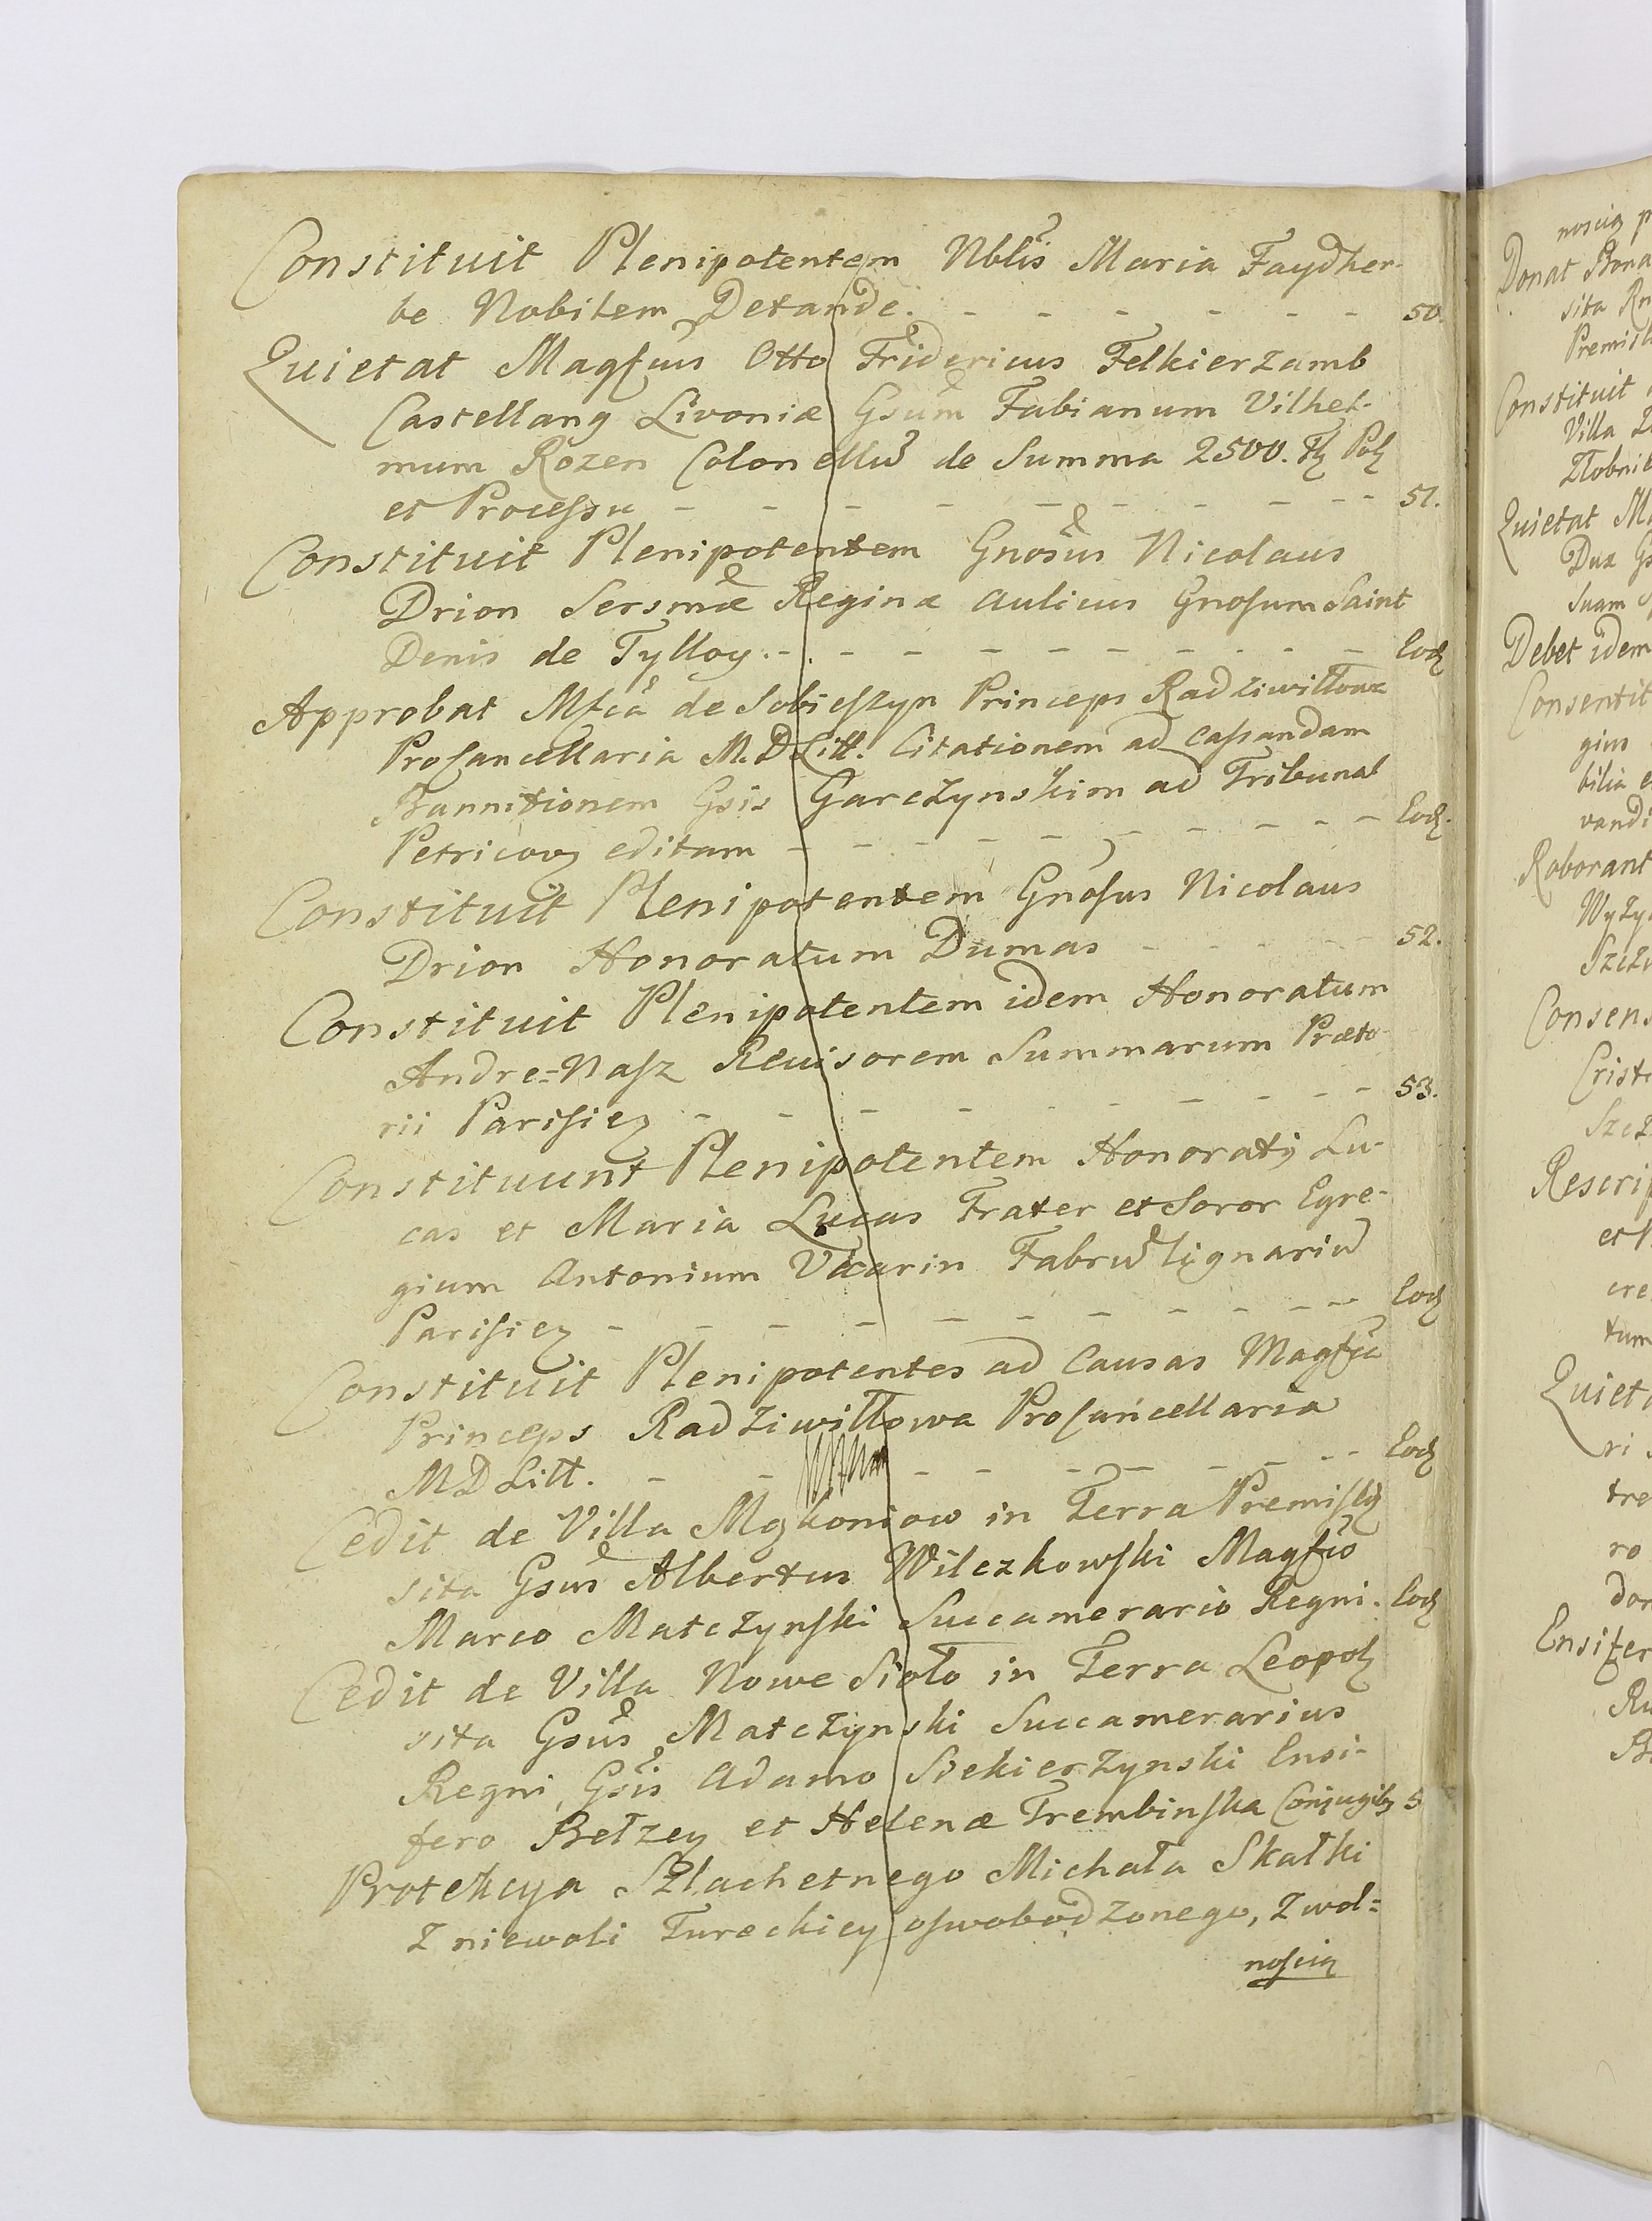 Constituit Plenipotentem Nblis Maria Faydher-
be Nobilem Detande. - - - - - - 50.
Quietat Magfcus Otto Fridericus Felkierzamb
Castellang Livoniæ Gsum Fabianum Vilhel-
mum Rozen Colonellu de Summa 2500. Fl Pol
et Processu - - - - - - - - 51.
Constituit Plenipotentem Gnosus Nicolaus
Drion Sersmæ Reginæ Aulicus Gnosum Saint
Denis de Tylloy. - - - - - - - - Eod
Approbat Mfca de Sobieszyn Princeps Radziwiłłowa
Procancellaria M. D Litt. Citationem ad Cassandam
Bannitionem Gsis Garczynskim ad Tribunal
Petricov editam - - - - - - - - Eod.
Constituit Plenipotentem Gnosus Nicolaus
Drion Honoratum Dumas - - - - 52.
Constituit Plenipotentem idem Honoratum
Andre=Nasz Revisorem Summarum Præto-
rii Parisien - - - - - - - - 53.
Constituunt Plenipotentem Honorati Lu-
cas et Maria Lucas Frater et Soror Egre-
gium Antonium Vacarin Fabru lignariu
Parisien - - - - - - - - Eod
Constituit Plenipotentes ad Causas Magfca
Princeps Radziwiłłowa Procancellaria
M D Litt. - - - - - - - - Eod
Cedit de Villa Mokoniow in Terra Premisli
sita Gsus Albertus Wilczkowski Magfco
Marco Matczynski Succamerario Regni. Eod
Cedit de Villa Nowe Sioło in Terra Leopol
sita Gsus Matczynski Succamerarius
Regni, Gsis Adamo Siekierzynski Ensi-
fero Bełzen et Helenæ Trembinska Conjugib 5
Protekcya Szlachetnego Michała Skałki
Z niewoli Tureckiey oswobodzonego, Z wol=
noscią